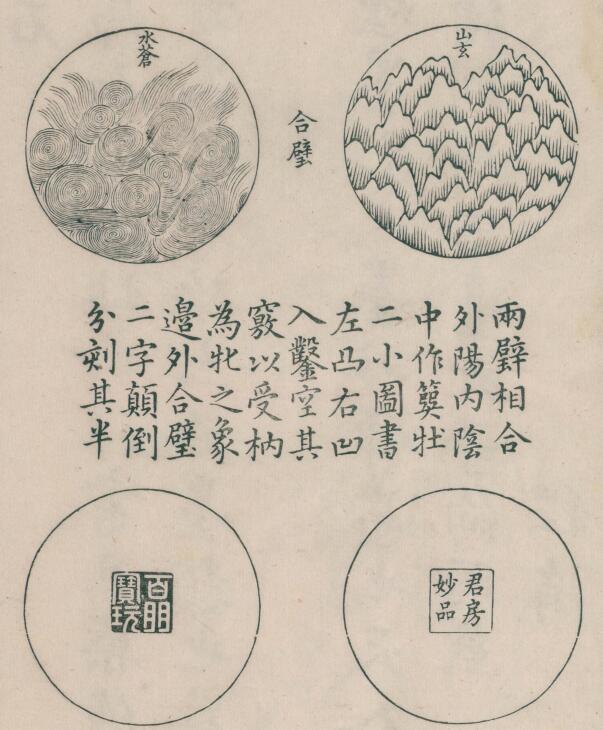 山玄
合璧
水蒼
兩璧相合
外陽内陰
中作簨牡
二小圖書
左凸右凹
入鑿空其
竅以受枘
為牝之象
邉外合璧
二字顛倒
分刻其半
君房
妙品
百朋
寶玩